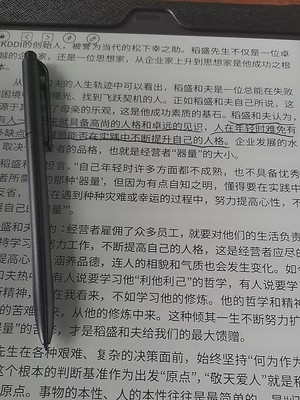 KDDI的创始人，被誉为当代的松下幸之助。稻盛先生不仅是一位卓
越的企业家，还是一位思想家，从企业家上升到思想家是他成功之根
本。
从稻盛和夫的人生轨迹中可以看出，稻盛和夫是一位总能在失败
困境中 曙光、找到飞跃契机的人。正如稻盛和夫自己所说，这
源于其 了母亲的乐观，这是他成功素质的基石。稻盛和夫认为，
有人 就具备高尚的人格和卓远的见识，人在年轻时难免有
缺点 是能否在实践中不断提升自己的人格。企业发展的水
取决 者的品格，也就是经营者“器量”的大小。
稻盛 坦言，“自己年轻时许多方面都不成熟，也不具备优秀
者所需 的那种‘器量’，但因为有点自知之明，懂得要在实践中
反省， 在遇到种种灾难或幸运的过程中，努力提高心性，不
自己 量”。
为：经营者雇用了众多员工，就要对他们的生活负责
持学习 努力工作，不断提高自己的人格，这是经营者应尽的
涵养品德，连人的相貌和气质也会发生变化。如
夫热 有人说要学习他“利他利己”的哲学，有人说要学
新精神， 在我看来，不如学习他的修炼。他的哲学和精神
的苦难 来，从他的修炼中来。这种倾其一生不断努力扩
量”的 ，才是稻盛和夫给我们的最大馈赠。
先生在各种艰难、复杂的决策面前，始终坚持“何为作
这个根本的判断基准作为出发“原点”，“敬天爱人”就是稻
原点。事物的本性、人的本性往往是最简单的，是“归